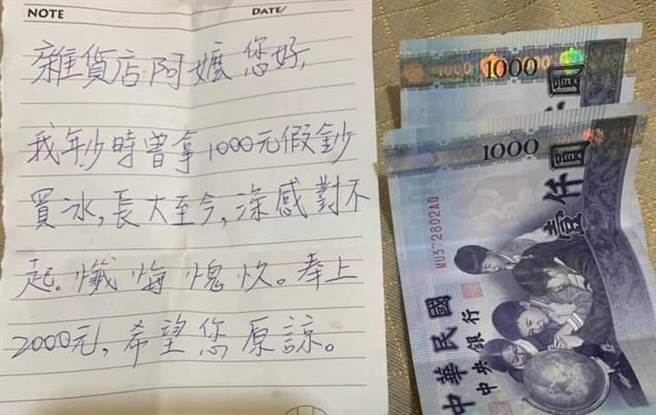 NOTE DATE/
雜貨店阿嬤您好,
我年少時曾拿1000元假鈔
買冰,長大至今,深感對不
起.懺悔愧疚。奉上
2000元,希望您原諒。
1000
1000
壹仟圓
MU372802AQ
中華民國
中央銀行